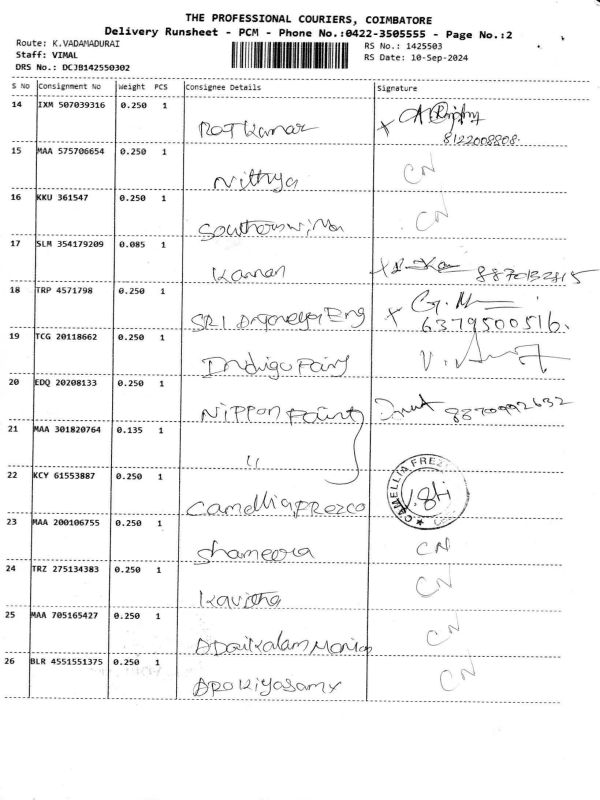 THE PROFESSIONAL COURIERS, COIMBATORE
Delivery Runsheet - PCM - Phone No.:0422-3505555 - Page No.:2
Route: K.VADAMADURAI RS No.: 1425503
Staff: VIMAL RS Date: 10-Sep-2024
DRS No.: DCJB142550302
S No Consignment No Weight PCS Consignee Details Signature
14 IXM 507039316 0.250 1 Rajkumar
8122008808.
15 MAA 575706654 0.250 1 Nithya CN
16 KKU 361547 0.250 1 CN
17 SLM 354179209 0.085 1 Kannan
18 TRP 4571798 0.250 1 SRI Anjaneya Eng
6379500516.
19 TCG 20118662 0.250 1 Indigo Paint
20 EDQ 20208133 0.250 1 Nippon Paint 8870992632
21 MAA 301820764 0.135 1 "
22 KCY 61553887 0.250 1 Camellia FRezco CAMELLIA FREZ
23 MAA 200106755 0.250 1 Shameera CN
24 TRZ 275134383 0.250 1 Kavitha CN
25 MAA 705165427 0.250 1 CN
26 BLR 4551551375 0.250 1 Arokiyasamy CN